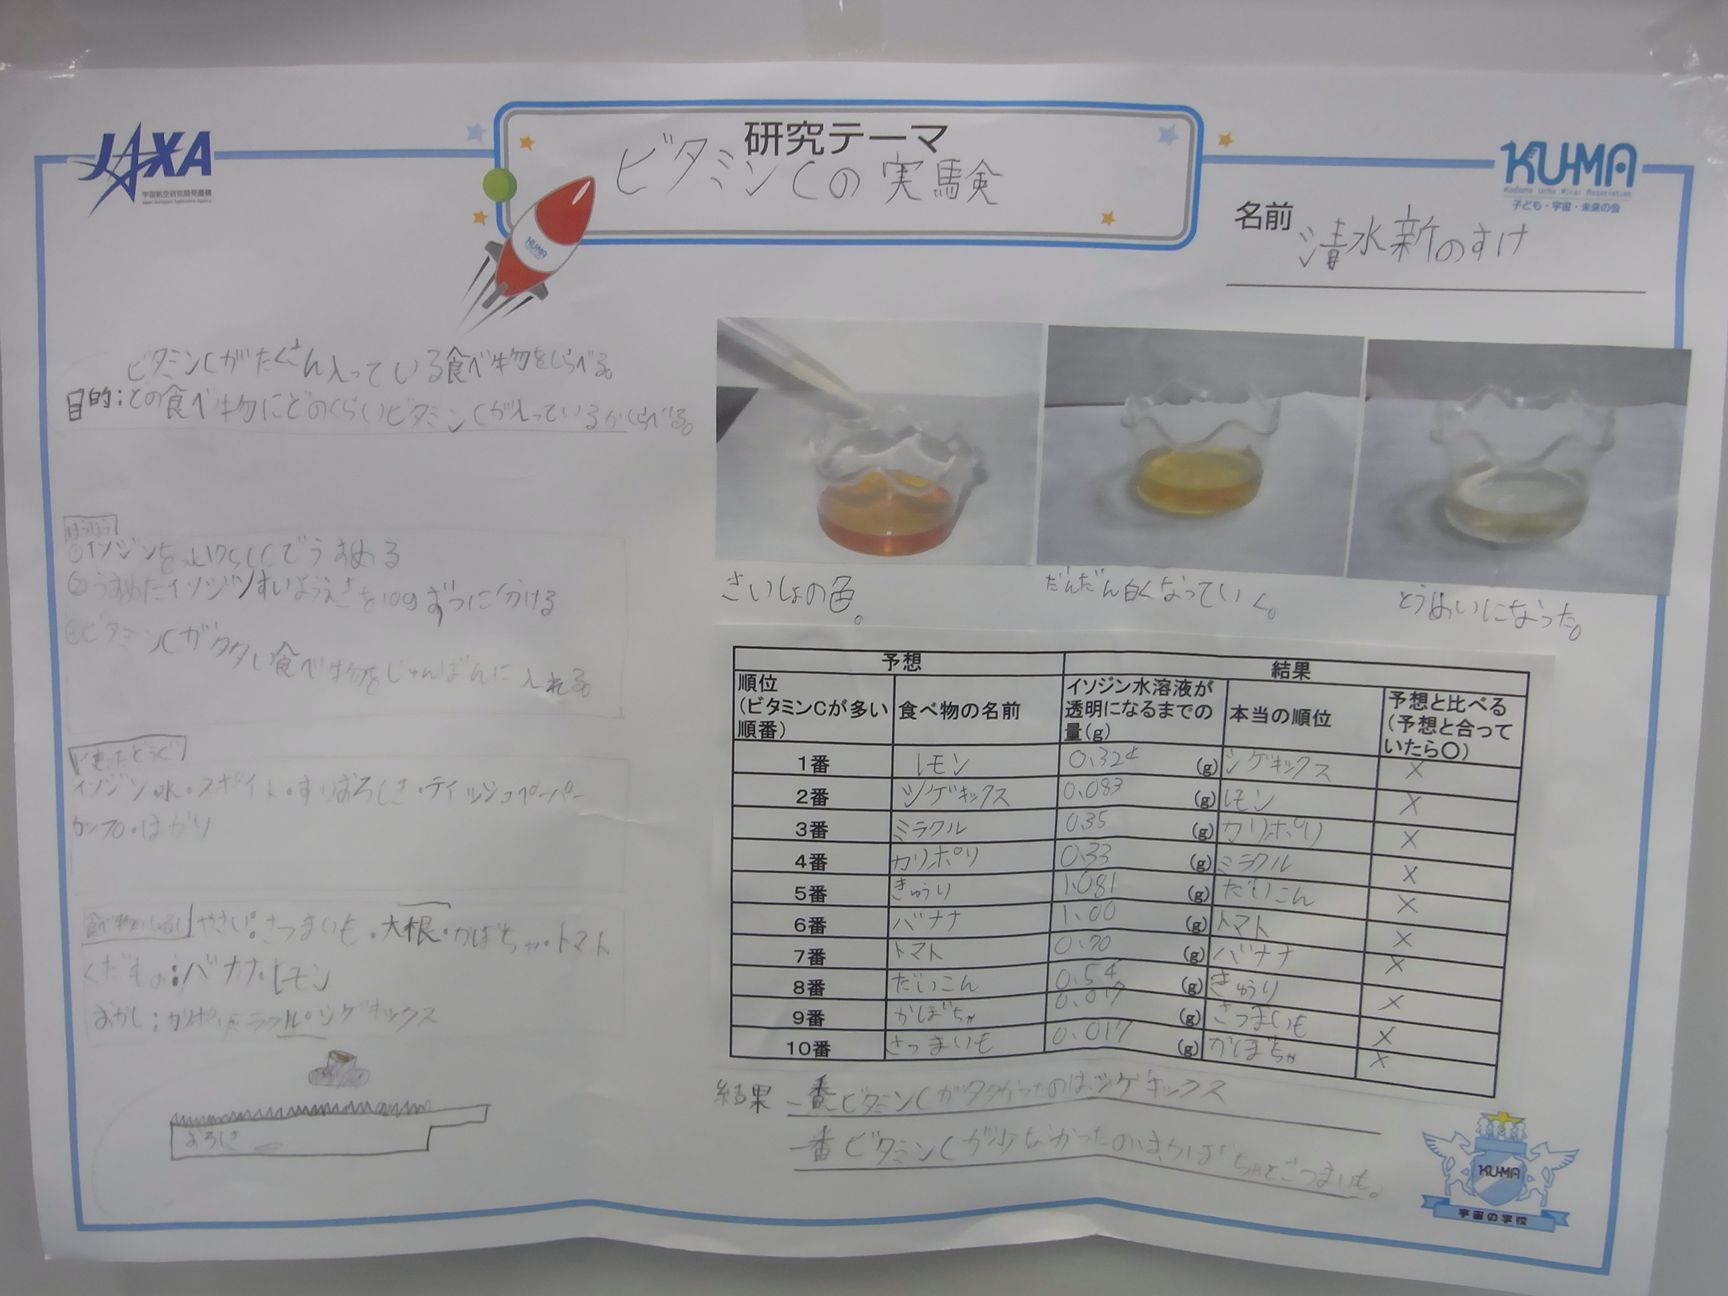 JAXA
宇宙航空研究開発機構
Japan Aerospace Exploration Agency
研究テーマ
ビタミンCの実験
KU-MA
Kodomo Uchu Mirai Association
子ども・宇宙・未来の会
名前 清水新のすけ
KUMA
ビタミンCがたくさん入っている食べ物をしらべる。
目的:どの食べ物にどのくらいビタミンCが入っているかしらべる。
ほうほう
①イソジンを でうすめる
②うすめたイソジンすいようえきを10gずつに分ける
③ビタミンCがタタい食べ物をじゅんばんに入れる。
使ったどうぐ
イソジン・水・スポイト・すりおろしき・ティッシュペーパー
カップ・はかり
食べ物のしるい やさい:さつまいも・大根・かぼちゃ・トマト
くだもの:バナナ・レモン
おかし:カリポリ・ミラクル・シゲキックス
おろしき
さいしょの色。
だんだん白くなっていく。
とうめいになった。
予想 結果
順位(ビタミンCが多い順番) 食べ物の名前 イソジン水溶液が透明になるまでの量(g) 本当の順位 予想と比べる(予想と合っていたら〇)
1番 レモン 0.324 (g) シゲキックス ×
2番 シゲキックス 0.083 (g) レモン ×
3番 ミラクル 0.35 (g) カリポリ ×
4番 カリポリ 0.33 (g) ミラクル ×
5番 きゅうり 1.081 (g) だいこん ×
6番 バナナ 1.00 (g) トマト ×
7番 トマト 0.70 (g) バナナ ×
8番 だいこん 0.54 (g) きゅうり ×
9番 かぼちゃ 0.017 (g) さつまいも ×
10番 さつまいも 0.017 (g) かぼちゃ ×
結果 一番ビタミンCがタタかったのはシゲキックス
一番ビタミンCが少なかったのは、かぼちゃとさつまいも。
KU-MA
宇宙の学校